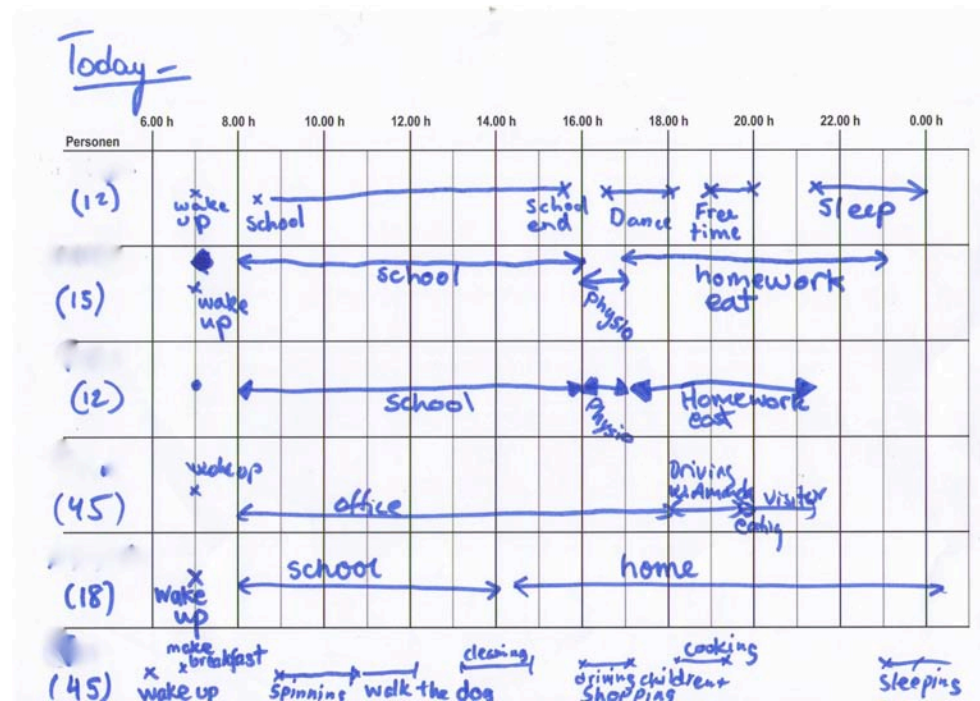 Today -
6.00 h 8.00 h 10.00 h 12.00 h 14.00 h 16.00 h 18.00 h 20.00 h 22.00 h 0.00 h
Personen
(12) wake up school School end Dance Free time Sleep
(15) wake up school Physio homework eat
(12) school Physio Homework eat
(45) wake up office Driving eating visitor
(18) wake up school home
(45) wake up make breakfast spinning walk the dog cleaning driving children + shopping cooking sleeping